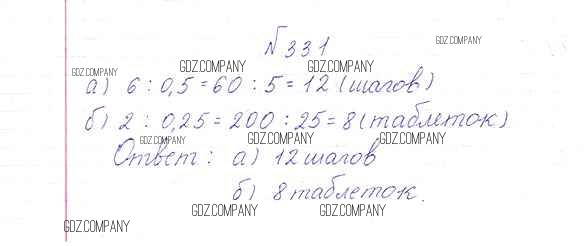 № 331
GDZ.COMPANY
GDZ.COMPANY GDZ.COMPANY
а) 6 : 0,5 = 60 : 5 = 12 (шагов)
б) 2 : 0,25 = 200 : 25 = 8 (таблеток)
GDZ.COMPANY GDZ.COMPANY GDZ.COMPANY
Ответ: а) 12 шагов
б) 8 таблеток.
GDZ.COMPANY GDZ.COMPANY
GDZ.COMPANY